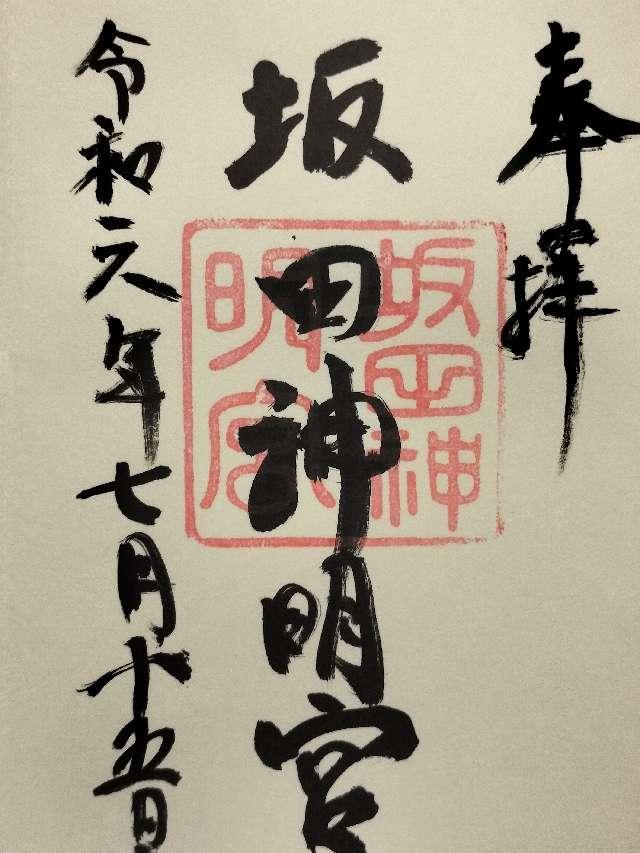 奉拝
坂田神明宮
坂田神
明宮
令和六年七月十五日